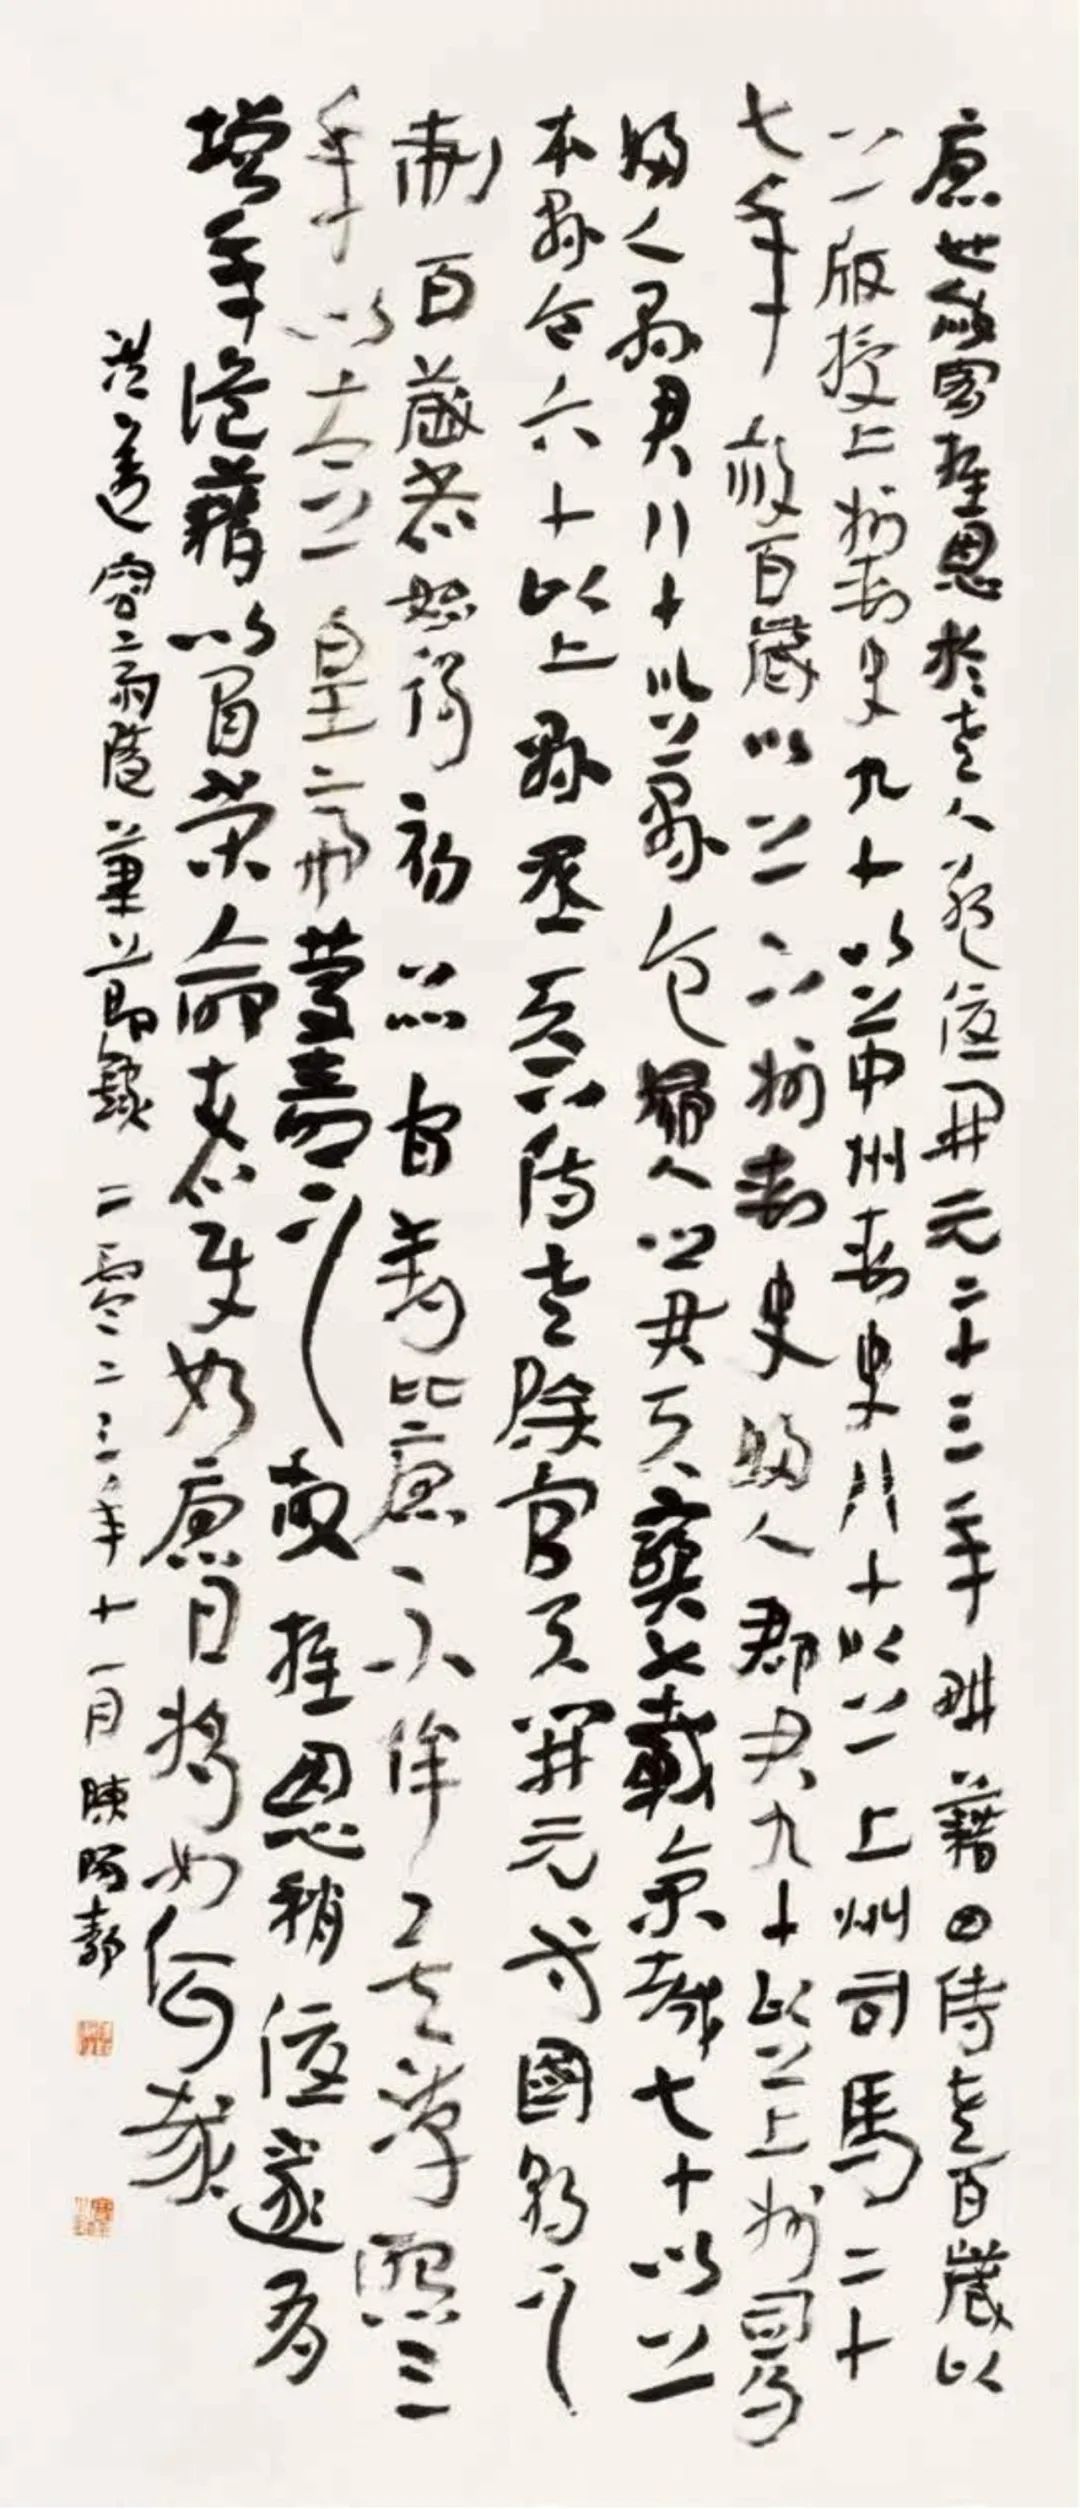 唐世赦宥推恩於老人絕優開元二十三年耕藉田侍老百歲以
上版授上州刺史九十以上中州刺史八十以上上州司馬二十
七年赦百歲以上下州刺史婦人郡君九十以上上州司馬
婦人縣君八十以上縣令婦人鄉君天寶七載京城七十以上
本縣令六十以上縣丞天下侍老除官與開元等國朝之
制百歲者始得初品官封比唐不侔矣淳熙三
年以太上皇帝慶壽之故推恩稍優遂有
增年詭藉以冒榮命者使如唐日將如何哉
洪邁容齋隨筆節錄二零二三年十一月陳